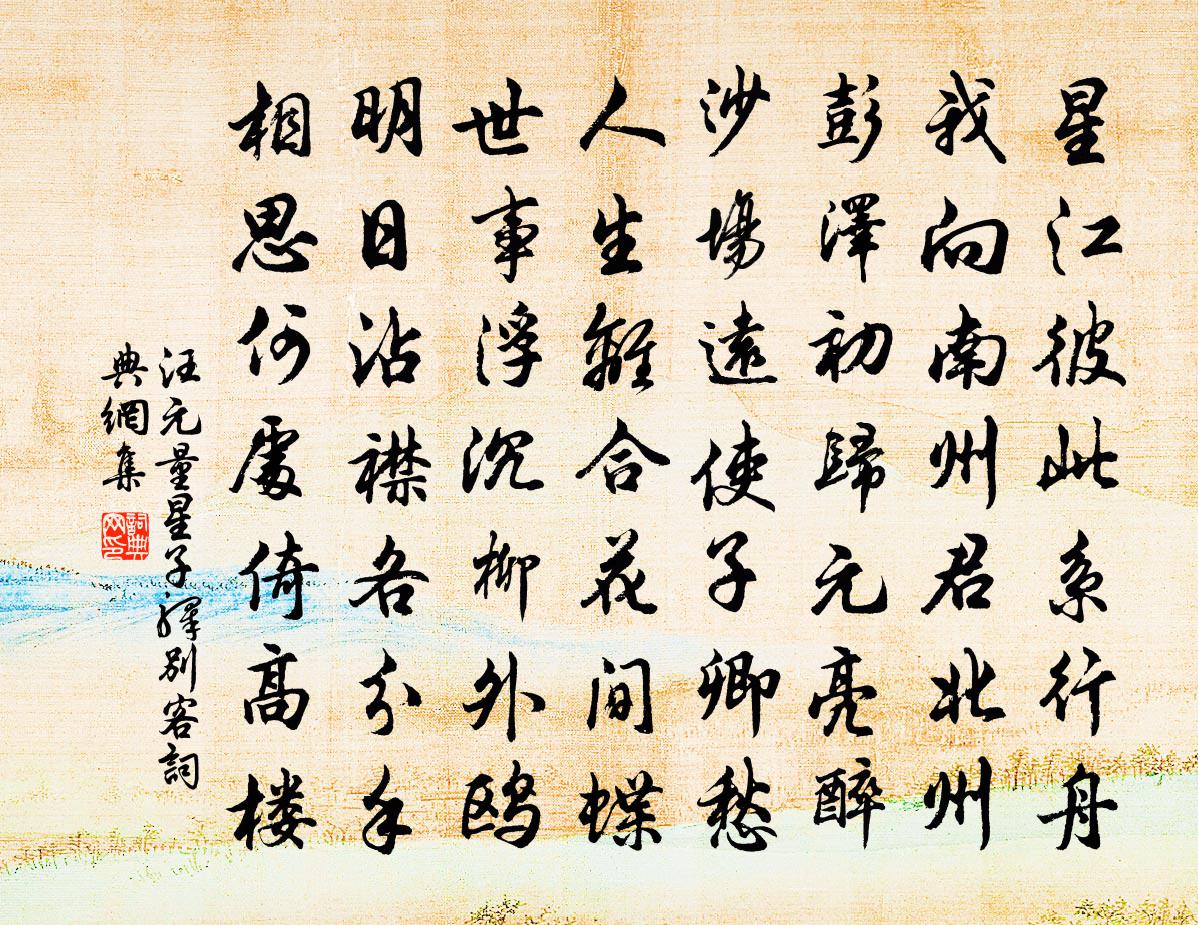 星江彼此系行舟
我向南州君北州
彭澤初歸元亮醉
沙場遠使子卿愁
人生離合花间蝶
世事浮沉柳外鸥
明日沾襟各分手
相思何處倚高楼
汪元量星子驛别客詞
典網集
詞典
网印